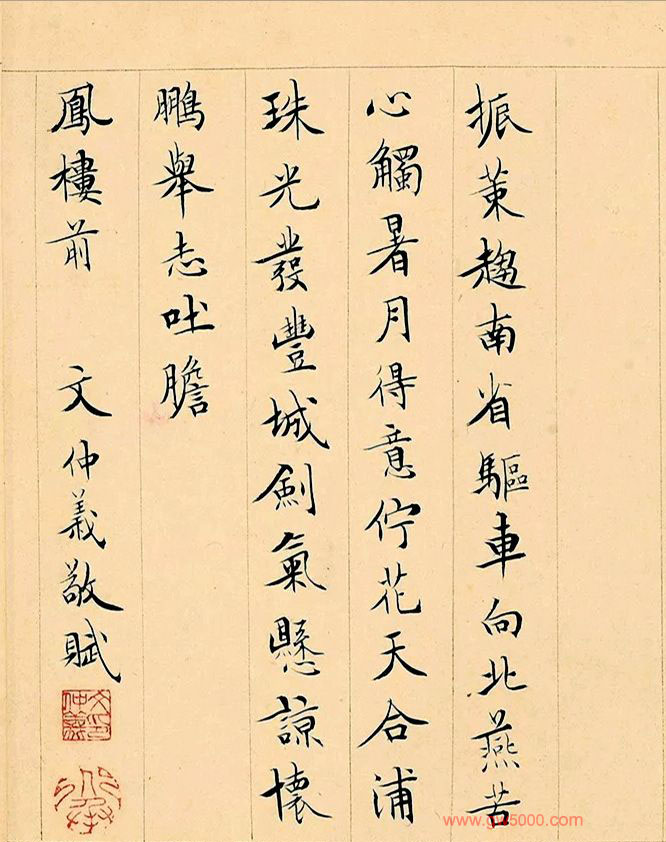 振策趨南省驅車向北燕苦
心觸暑月得意佇花天合浦
珠光發豐城劍氣懸諒懷
鵬舉志吐膽
鳳樓前 文仲義敬賦
www.gw5000.com